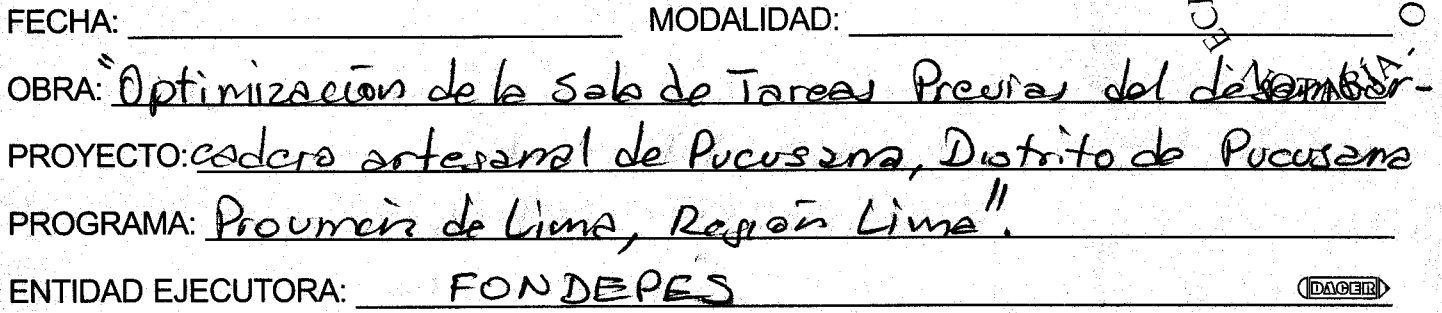 FECHA: MODALIDAD:
OBRA: "Optimización de la Sala de Tareas Previas del desembar-
PROYECTO: cadero artesanal de Pucusana, Distrito de Pucusana
PROGRAMA: Provincia de Lima, Región Lima".
ENTIDAD EJECUTORA: FONDEPES DACER